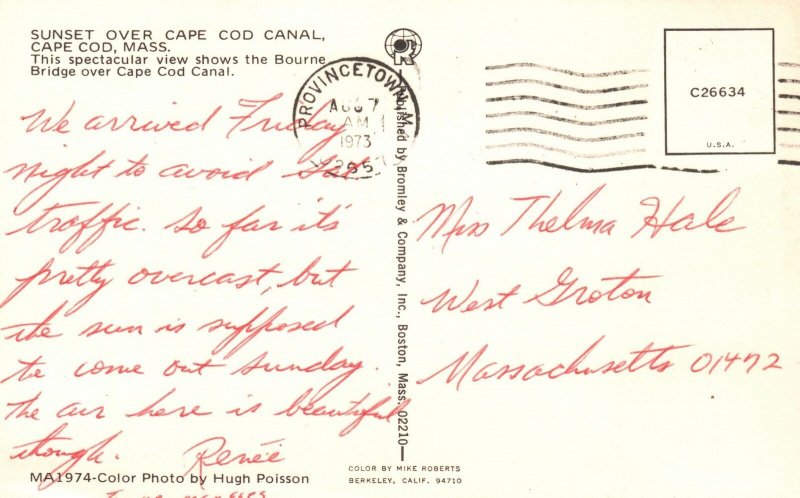 SUNSET OVER CAPE COD CANAL,
CAPE COD, MASS.
This spectacular view shows the Bourne
Bridge over Cape Cod Canal.
We arrived Friday
night to avoid Sat
traffic. So far it's
pretty overcast, but
the sun is supposed
to come out Sunday.
The air here is beautiful
though. Renée
MA1974-Color Photo by Hugh Poisson
PROVINCETOWN, M
AUG 7
AM
1973
Published by Bromley & Company, Inc., Boston, Mass. 02210
C26634
U.S.A.
Miss Thelma Hale
West Groton
Massachusetts 01472
COLOR BY MIKE ROBERTS
BERKELEY, CALIF. 94710